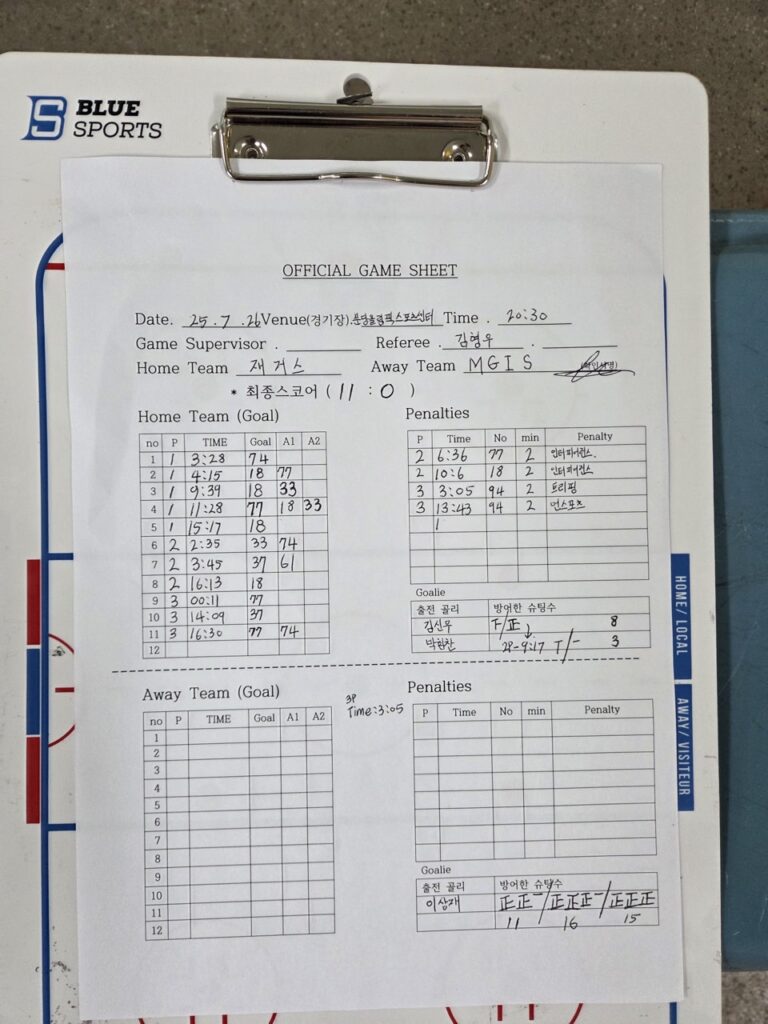 BLUE
SPORTS
OFFICIAL GAME SHEET
Date. 25.7.26 Venue(경기장).분당올림픽스포츠센터 Time. 20:30
Game Supervisor . Referee . 김형우 .
Home Team 재거스 Away Team MGIS
* 최종스코어 ( 11 : 0 )
Home Team (Goal) Penalties
no P TIME Goal A1 A2
1 1 3:28 74
2 1 4:15 18 77
3 1 9:39 18 33
4 1 11:28 77 18 33
5 1 15:17 18
6 2 2:35 33 74
7 2 3:45 37 61
8 2 16:13 18
9 3 00:11 77
10 3 14:09 37
11 3 16:30 77 74
12
P Time No min Penalty
2 6:36 77 2 인터피어런스.
2 10:6 18 2 인터피어런스
3 3:05 94 2 트리핑
3 13:43 94 2 언스포츠
Goalie
출전 골리 방어한 슈팅수
김신우 下/正 8
박한찬 2P-9:17 T/- 3
HOME/ LOCAL
Away Team (Goal) 3P Time:3:05 Penalties
no P TIME Goal A1 A2
1
2
3
4
5
6
7
8
9
10
11
12
P Time No min Penalty
AWAY/ VISITEUR
Goalie
출전 골리 방어한 슈팅수
이상재 正正一/正正正一/正正正
11 16 15